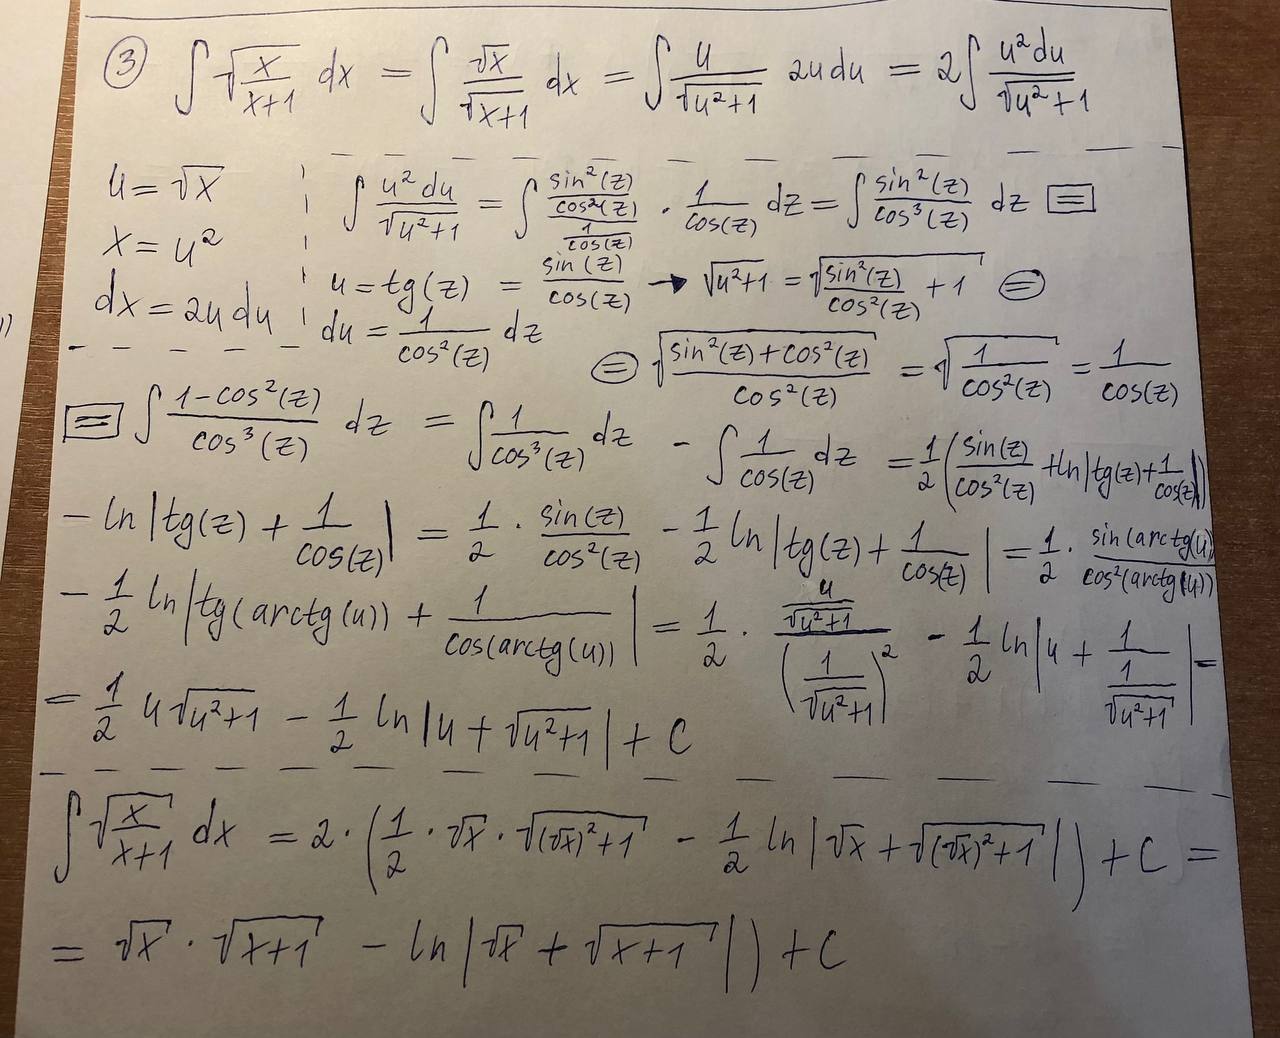 ③ ∫ √(x/(x+1)) dx = ∫ √x/√(x+1) dx = ∫ u/√(u²+1) 2u du = 2∫ u² du/√(u²+1)
u = √x
x = u²
dx = 2u du
∫ u² du/√(u²+1) = ∫ (sin²(z)/cos²(z))/(1/cos(z)) · 1/cos(z) dz = ∫ sin²(z)/cos³(z) dz ⊟
u = tg(z) = sin(z)/cos(z) → √(u²+1) = √(sin²(z)/cos²(z) + 1) ⊜
du = 1/cos²(z) dz
⊜ √((sin²(z)+cos²(z))/cos²(z)) = √(1/cos²(z)) = 1/cos(z)
⊟ ∫ (1-cos²(z))/cos³(z) dz = ∫ 1/cos³(z) dz - ∫ 1/cos(z) dz = 1/2 (sin(z)/cos²(z) + ln|tg(z) + 1/cos(z)|)
- ln|tg(z) + 1/cos(z)| = 1/2 · sin(z)/cos²(z) - 1/2 ln|tg(z) + 1/cos(z)| = 1/2 · sin(arctg(u))/cos²(arctg(u))
- 1/2 ln|tg(arctg(u)) + 1/cos(arctg(u))| = 1/2 · (u/√(u²+1))/(1/√(u²+1))² - 1/2 ln|u + 1/(1/√(u²+1))| =
= 1/2 u√(u²+1) - 1/2 ln|u + √(u²+1)| + C
∫ √(x/(x+1)) dx = 2 · (1/2 · √x · √((√x)²+1) - 1/2 ln|√x + √((√x)²+1)|) + C =
= √x · √(x+1) - ln|√x + √(x+1)|) + C